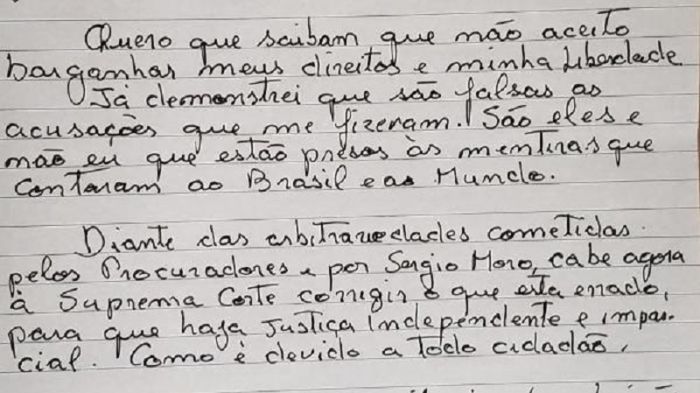 Quero que saibam que não aceito
barganhar meus direitos e minha Liberdade
Já demonstrei que são falsas as
acusações que me fizeram. São eles e
não eu que estão presos às mentiras que
contaram ao Brasil e ao Mundo.
Diante das arbitrariedades cometidas
pelos Procuradores e por Sergio Moro, cabe agora
à Suprema Corte corrigir o que esta errado,
para que haja Justiça Independente e impar-
cial. Como é devido a todo cidadão.